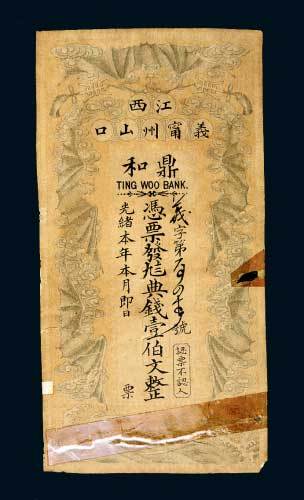 西江
口山州甯義
和鼎
TING WOO BANK.
義字第
號
憑票發兌典錢壹伯文整
光緒本年本月即日
票
認票不認人